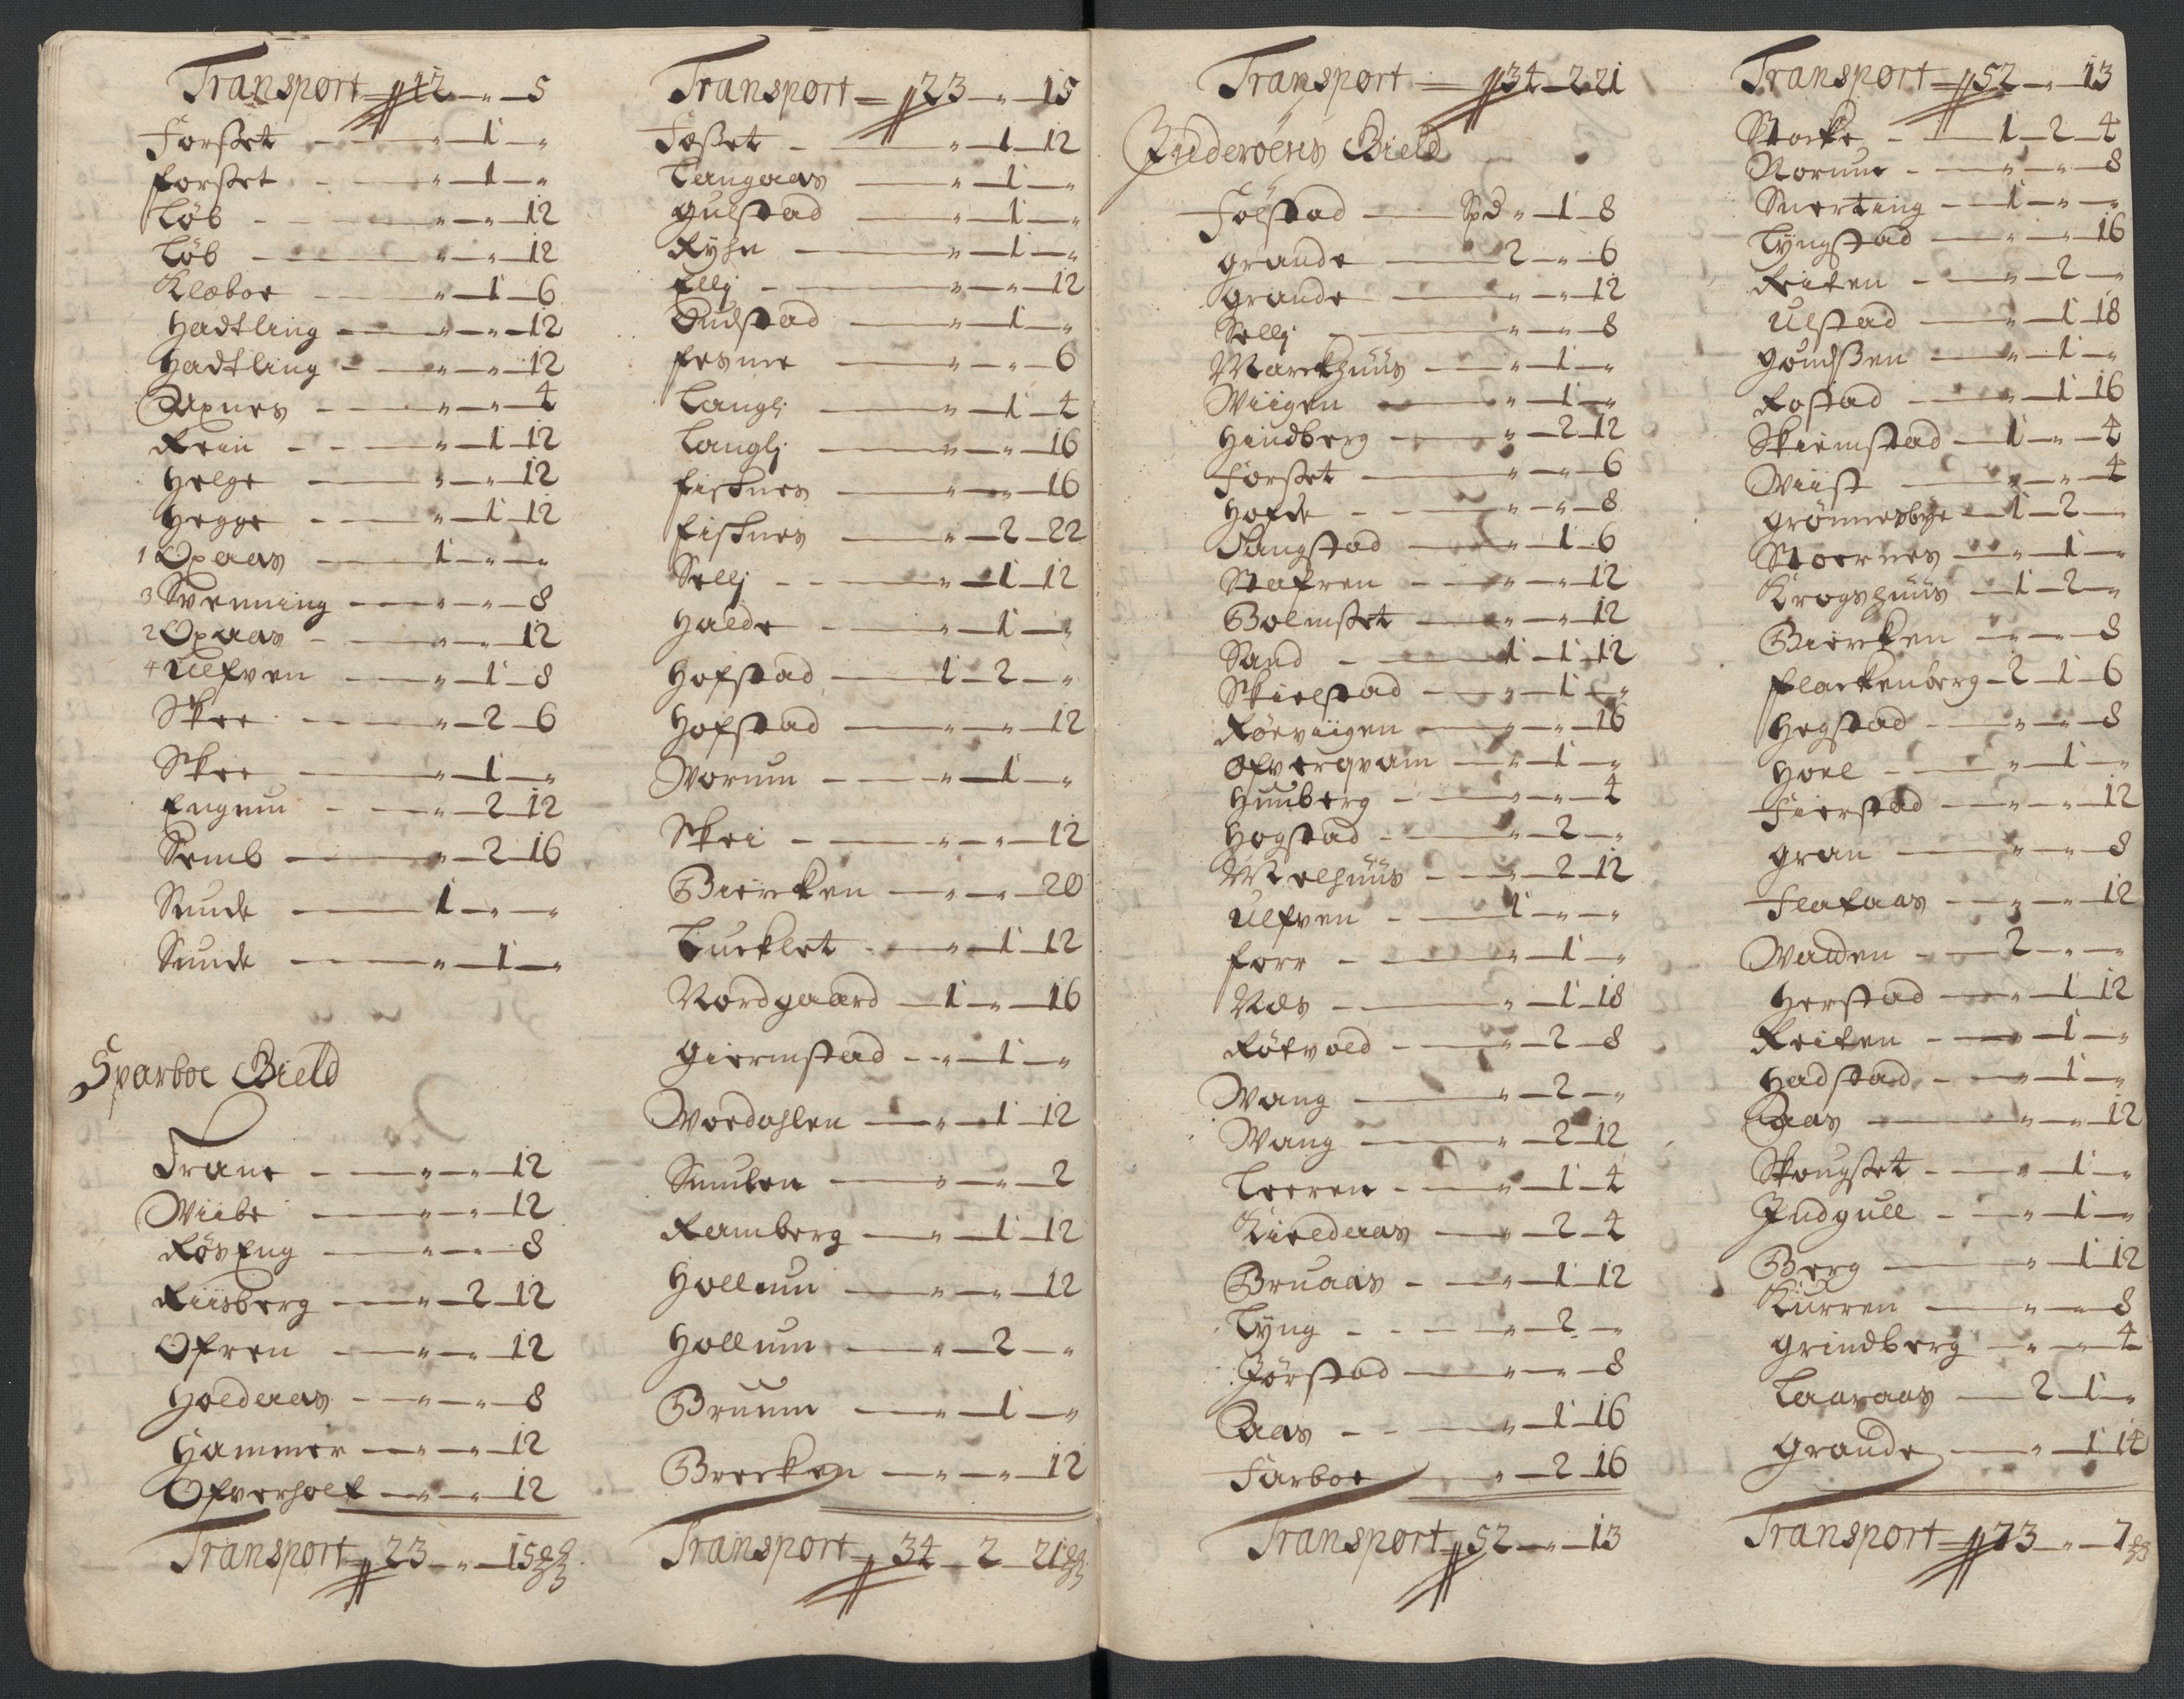 Transport — 12 — " — 5
Forset — " — 1 — "
Forset — " — 1 — "
Løb — " — " — 12
Løb — " — " — 12
Kleboe — " — 1 — 6
Hadtling — " — " — 12
Hadtling — " — " — 12
Auxnes — " — " — 4
Rein — " — 1 — 12
Helge — " — " — 12
Hegge — " — 1 — 12
1 Oxaas — 1 — " — "
3 Svenning — " — " — 8
2 Oxaas — " — " — 12
4 Ulfven — " — 1 — 8
Skee — " — 2 — 6
Skee — " — 1 — "
Engum — " — 2 — 12
Semb — " — 2 — 16
Sunde — 1 — " — "
Sunde — " — 1 — "
Sparboe Gield
Trane — " — " — 12
Wiibe — " — " — 12
Røseng — " — " — 8
Riisberg — " — 2 — 12
Ofren — " — " — 12
Holdaas — " — " — 8
Hammer — " — " — 12
Ofverholt — " — " — 12
Transport — 23 — " — 15
Transport — 23 — " — 15
Fosset — " — 1 — 12
Langaas — " — 1 — "
Gulstad — " — 1 — "
Ryhn — " — 1 — "
Ellj — " — " — 12
Oudstad — " — 1 — "
Fesme — " — " — 6
Langlj — " — 1 — 4
Langlj — " — " — 16
Fisknes — " — " — 16
Fisknes — " — 2 — 22
Sellj — " — 1 — 12
Halde — " — 1 — "
Hofstad — 1 — 2 — "
Hofstad — " — " — 12
Worum — " — 1 — "
Skei — " — " — 12
Biercken — " — " — 20
Lucklet — " — 1 — 12
Nordgaard — 1 — " — 16
Giermstad — " — 1 — "
Wordahlen — " — 1 — 12
Smulen — " — " — 2
Ramberg — " — 1 — 12
Hollum — " — " — 12
Hollum — " — 2 — "
Bruum — " — 1 — "
Brecken — " — " — 12
Transport — 34 — 2 — 21
Transport — 34 — 2 21
Inderøens Gield
Følstad — Spd " — 1 — 8
Grande — 2 — " — 6
Grande — " — " — 12
Sellj — " — " — 8
Marckhuus — " — 1 — "
Wiigen — " — 1 — "
Hindberg — " — 2 — 12
Forset — " — " — 6
Hofde — " — " — 8
Vangstad — " — 1 — 6
Stafren — " — " — 12
Bolmset — " — " — 12
Sand — 1 — 1 — 12
Skielstad — " — 1 — "
Røeviigen — " — " — 16
Ofverqvam — " — 1 — "
Huuberg — " — " — 4
Hogstad — " — 2 — "
Melhuus — " — 2 — 12
Ulfven — 1 — " — "
Forr — " — 1 — "
Næs — " — 1 — 18
Røtvold — " — 2 — 8
Wang — " — 2 — "
Wang — " — 2 — 12
Leeren — " — 1 — 4
Kieldaas — " — 2 — 4
Bruaas — " — 1 — 12
Lÿng — " — 2 — "
Jørstad — " — " — 8
Aas — " — 1 — 16
Farboe — " — 2 — 16
Transport — 52 — " — 13
Transport — 52 — " — 13
Storke — 1 — 2 — 4
Norum — " — " — 8
Snerting — 1 — " — "
Lÿngstad — " — " — 16
Reiten — " — 2 — "
Ulstad — " — 1 — 18
Goundsen — " — 1 — "
Rostad — " — 1 — 16
Skiemstad — 1 — " — 4
Wiist — " — " — 4
Grønnesbye — 1 — 2 — "
Stoernes — " — 1 — "
Krogshuus — 1 — 2 — "
Biercken — " — " — 8
Flackenberg — 2 — 1 — 6
Hegstad — " — " — 8
Hoel — " — 1 — "
Fierstad — " — " — 12
Gran — " — " — 8
Flataas — " — " — 12
Walden — 2 — " — "
Herstad — " — 1 — 12
Reiten — " — 1 — "
Hadstad — " — 1 — "
Aas — " — " — 12
Skougset — " — 1 — "
Indgull — " — 1 — "
Berg — " — 1 — 12
Kurren — " — " — 8
Grindberg — " — " — 4
Laaraas — 2 — 1 — "
Grande — " — 1 — 14
Transport — 73 — " — 7